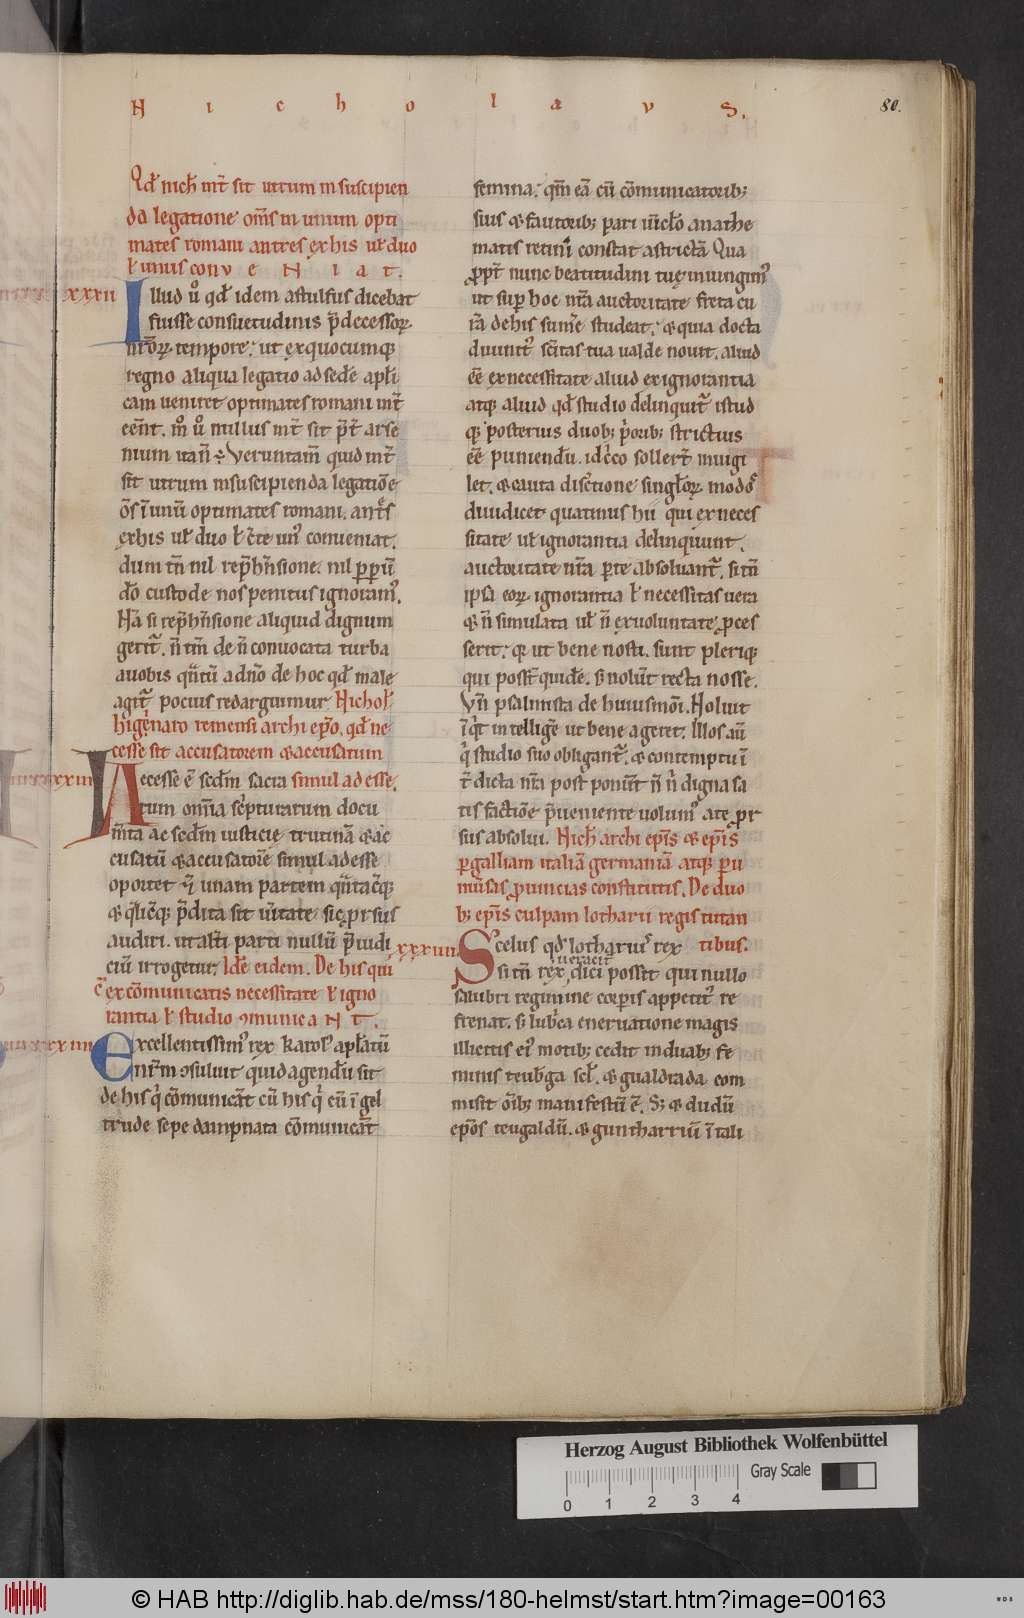 N i c h o l a v S.
80.
Qd nich int sit utrum in suscipien
da legatione oms in unum opti
mates romani an tres ex his ul duo
l unus conv e N i a t .
xxxii
Illud u qd idem astulfus dicebat
fuisse consuetudinis pdecessor
nror tempore: ut ex quocumq
regno aliqua legatio ad sede apli
cam ueniret optimates romani int
eent. m u nullus int sit pt arse
nium uta n: Veruntam quid int
sit utrum in suscipienda legatioe
os i unu optimates romani. an ts
ex his ul duo l cte un conueniat.
dum tn nil rephnsione. nil ppu
do custode nos penitus ignoram.
Na si rephnsione aliquid dignum
gerit. n tm de n conuocata turba
a uobis qntu a dno de hoc qd male
agit pocius redarguimur Nichol
higenaro remensi archi epo. qd ne
cesse sit accusatorem & accusatum
xxxiii
Necesse e sedm sacra simul adesse.
rum omnia scripturarum docu
mta ac sedm iusticie trutina & ac
cusatu & accusatore simul adesse
oportet & unam partem qntacq
& qlicq pdita sit uitate sic prsus
audiri. ut alti parti nullu piudi
ciu irrogetur. Ide eidem. De his qui
c excomunicatis necessitate l igno
rantia l studio comunica N T .
xxxiiii
Excellentissim rex Karol aplatu
nrm consuluit quid agendu sit
de his q comunicat cu his q cu i gel
trude sepe dampnata comunicat
femina: qm ea cu comunicatorib;
suis & fautorib; pari uiclo anathe
matis retineri constat astricta Qua
ppt nunc beatitudini tue iniungim
ut sup hoc nra auctoritate freta cu
ra de his sume studeat: & quia docta
duunt scitas tua ualde nouit. aliud
ee ex necessitate aliud ex ignorantia
atq aliud qd studio delinquit istud
q posterius duob; priorib; strictius
ee puniendu. idcco sollert inuigi
let. & cauta disctione singlor modos
diuidicet quatinus hii qui ex neces
sitate ul ignorantia delinquunt.
auctoritate nra pte absoluant. si tn
ipsa eor ignorantia l necessitas uera
& n simulata ul n ex uoluntate pces
serit: q ut bene nosti. sunt pleriq
qui posst quide. s nolut recta nosse.
Vn psalmista de huiusmoi. Noluit
iqt intellige ut bene ageret. Illos au
q studio suo obligant. & contemptu i
t dicta nra post ponut n n digna sa
tis factioe pueniente uolum a te pr
sus absolui. Nich archi epis & epis
p galliam italia germania atq p u
niusas puincias constitutis. De duo
b; epis culpam lotharii regis tutan
tibus.
xxxuii
Scelus qd lothariu rex
ueracit
si tn rex dici possit qui nullo
salubri regimine corpis appetit re
frenat. s lubca eneruatione magis
illicitis ei motib; cedit in duab; fe
minis teubga scl. & gualdrada com
misit oib; manifestu e. S; & dudu
epos teugaldu. & guntharriu i tali
Herzog August Bibliothek Wolfenbüttel
Gray Scale
0 1 2 3 4
© HAB http://diglib.hab.de/mss/180-helmst/start.htm?image=00163